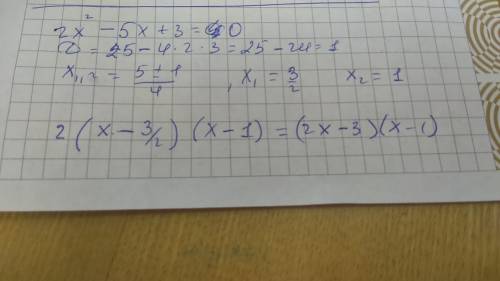 2x² - 5x + 3 = 0
D = 25 - 4 · 2 · 3 = 25 - 24 = 1
x₁,₂ = (5 ± 1)/4 , x₁ = 3/2 x₂ = 1
2 (x - 3/2) (x - 1) = (2x - 3)(x - 1)